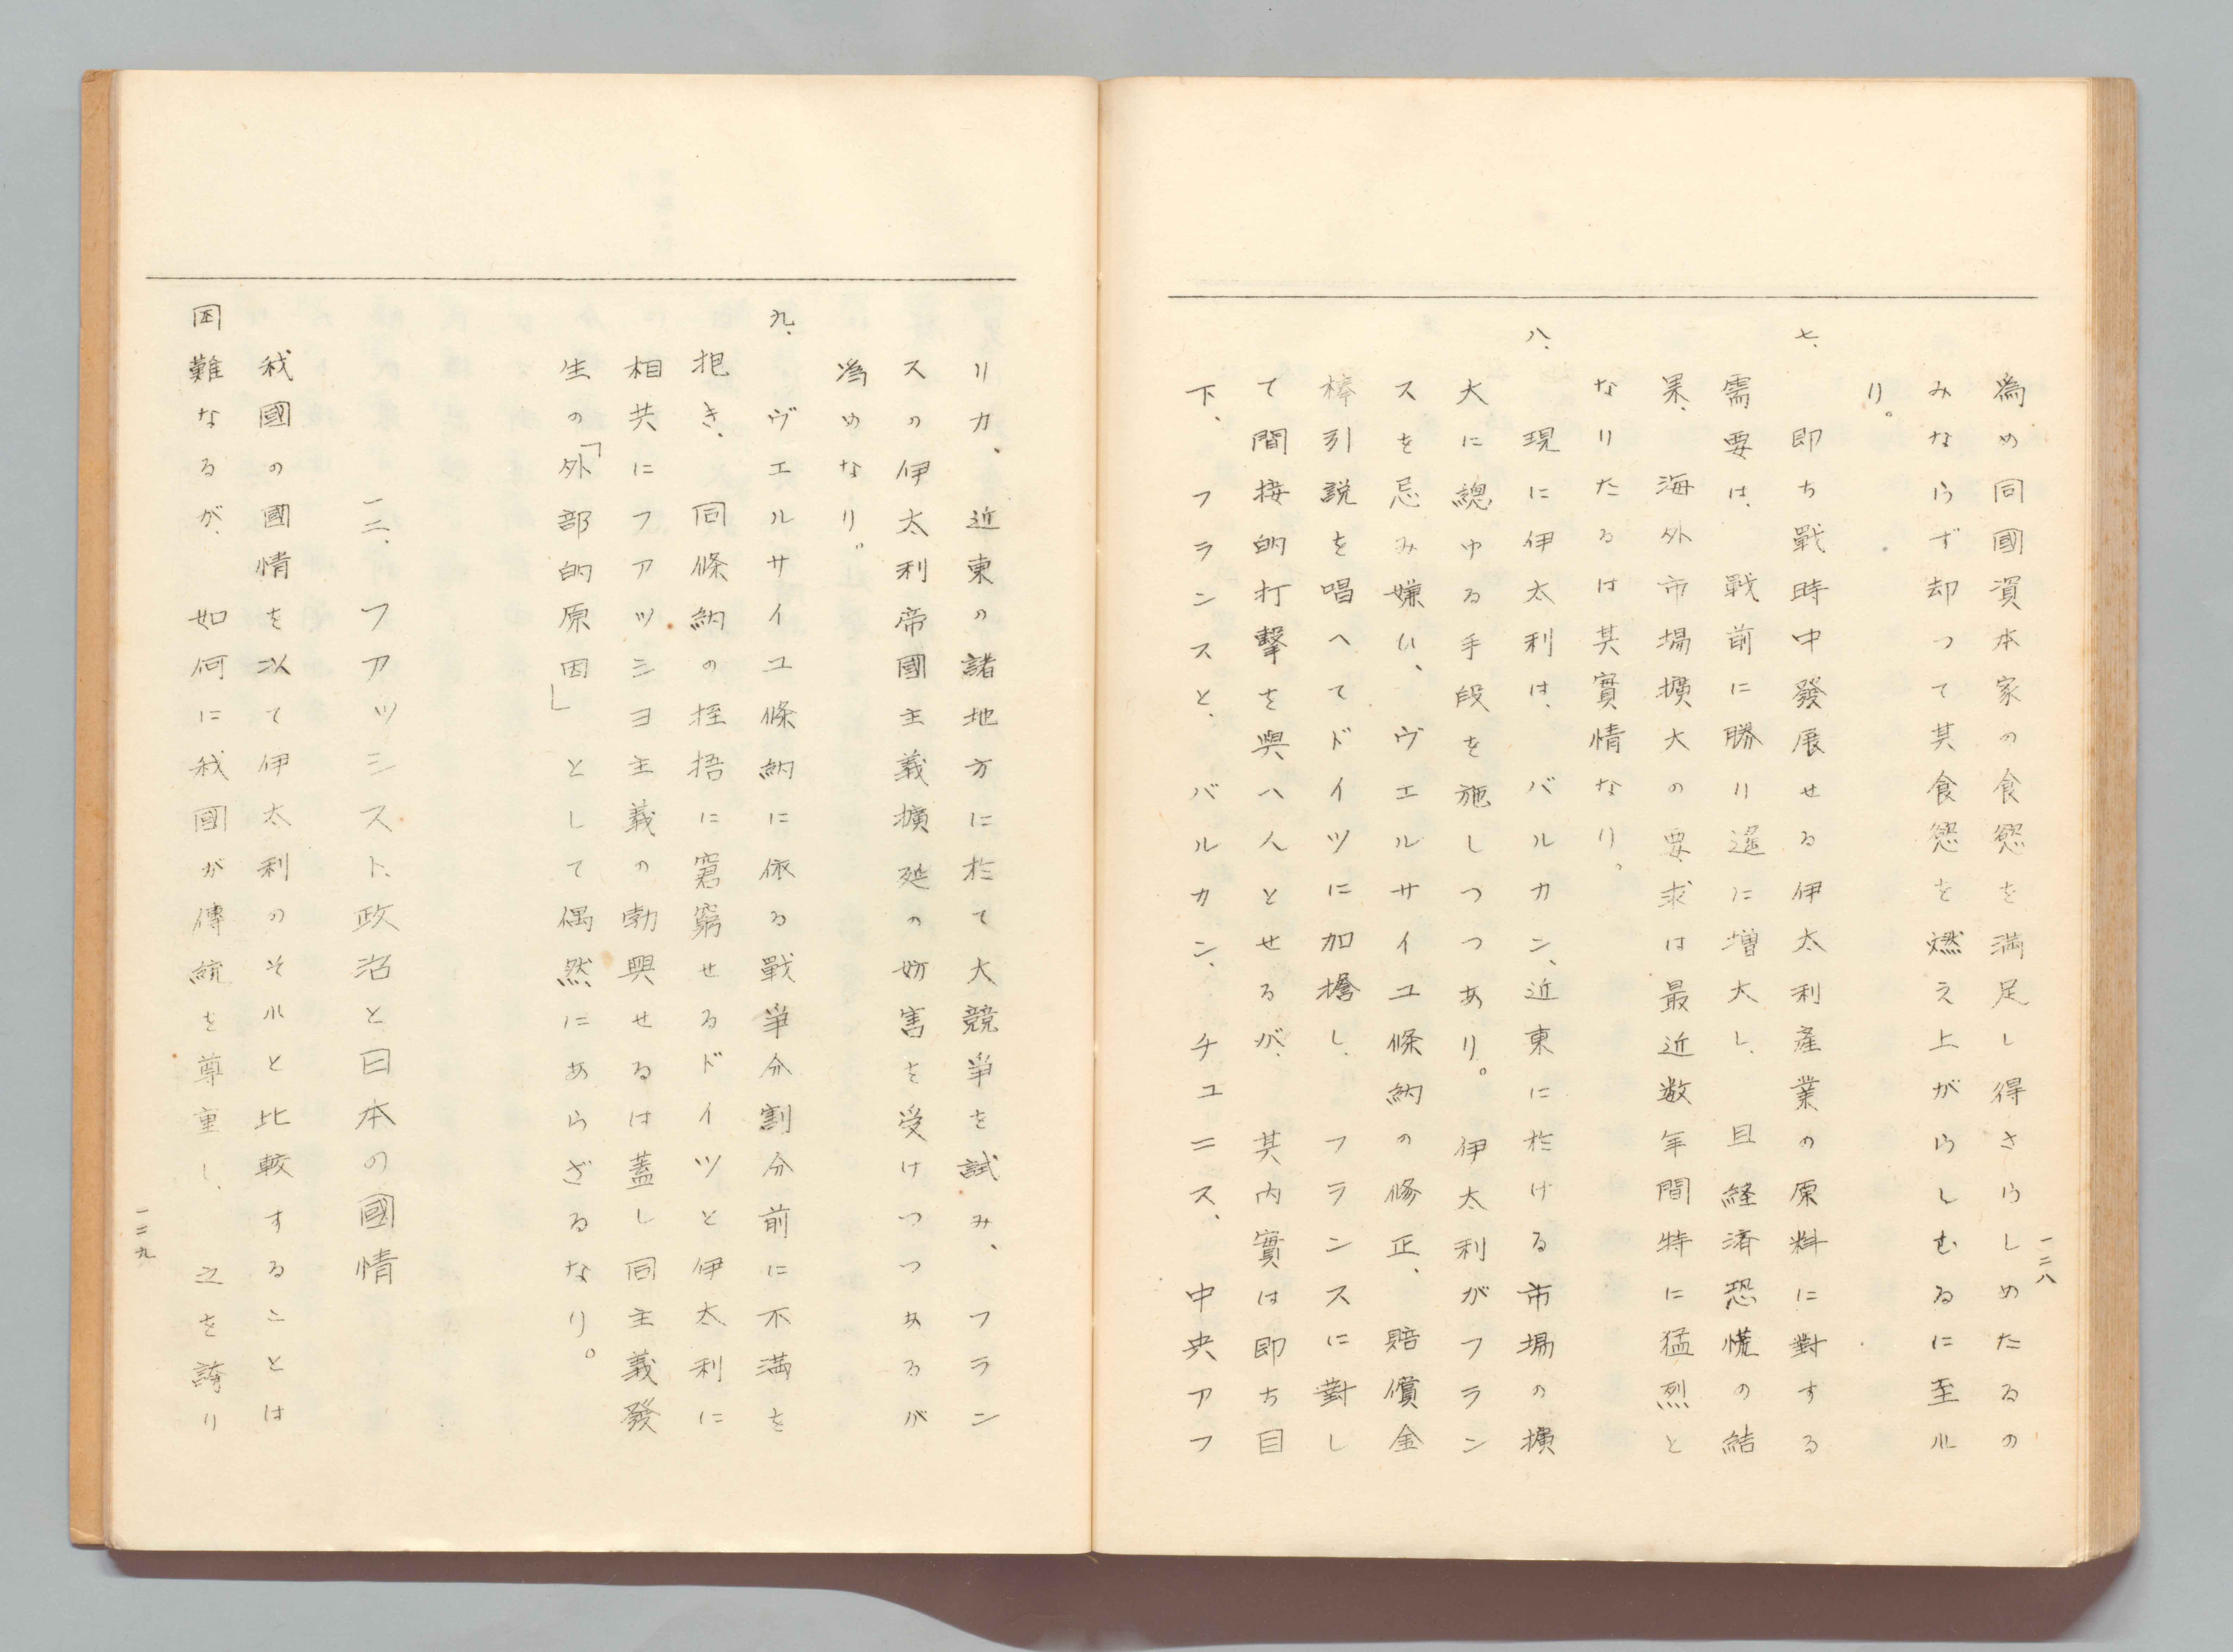 一二八
為め同國資本家の食慾を満足し得さらしめたるの
みならず却つて其食慾を燃え上がらしむるに至ル
り。
七、
即ち戰時中發展せる伊太利産業の原料に對する
需要は、戰前に勝り遥に増大し、且経済恐慌の結
果、海外市場擴大の要求は最近数年間特に猛烈と
なりたるは其實情なり。
八、
現に伊太利は、バルカン、近東に於ける市場の擴
大に總ゆる手段を施しつつあり。伊太利がフラン
スを忌み嫌い、ヴエルサイユ條約の修正、賠償金
棒引説を唱へてドイツに加擔し、フランスに對し
て間接的打撃を與へんとせるが、其内實は即ち目
下、フランスと、バルカン、チユニス、中央アフ
リカ、近東の諸地方に於て大競爭を試み、フラン
スの伊太利帝國主義擴延の妨害を受けつつあるが
為めなり。
九、
ヴエルサイユ條約に依る戰爭分割分前に不満を
抱き、同條約の桎梏に窘窮せるドイツと伊太利に
相共にフアツシヨ主義の勃興せるは蓋し同主義發
生の「外部的原因」として偶然にあらざるなり。
一二、フアツシスト政治と日本の國情
我國の國情を以て伊太利のそルと比較することは
困難なるが、如何に我國が傳統を尊重し、之を誇り
一二九